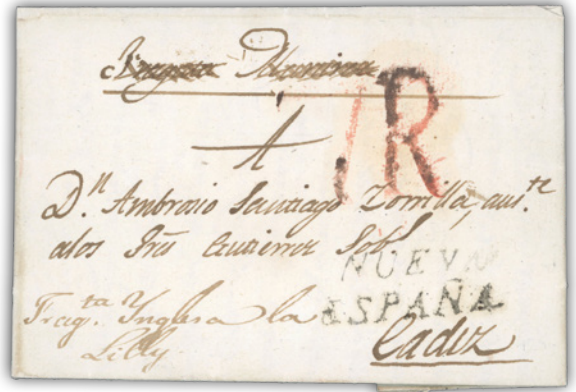 1R
A
D.ⁿ Ambrosio Santiago Zorrilla, aus.te
a los Sres Gutierrez Sobs
NUEVA
ESPAÑA
Frag.ta Ynglesa la
Lilly
Cadiz